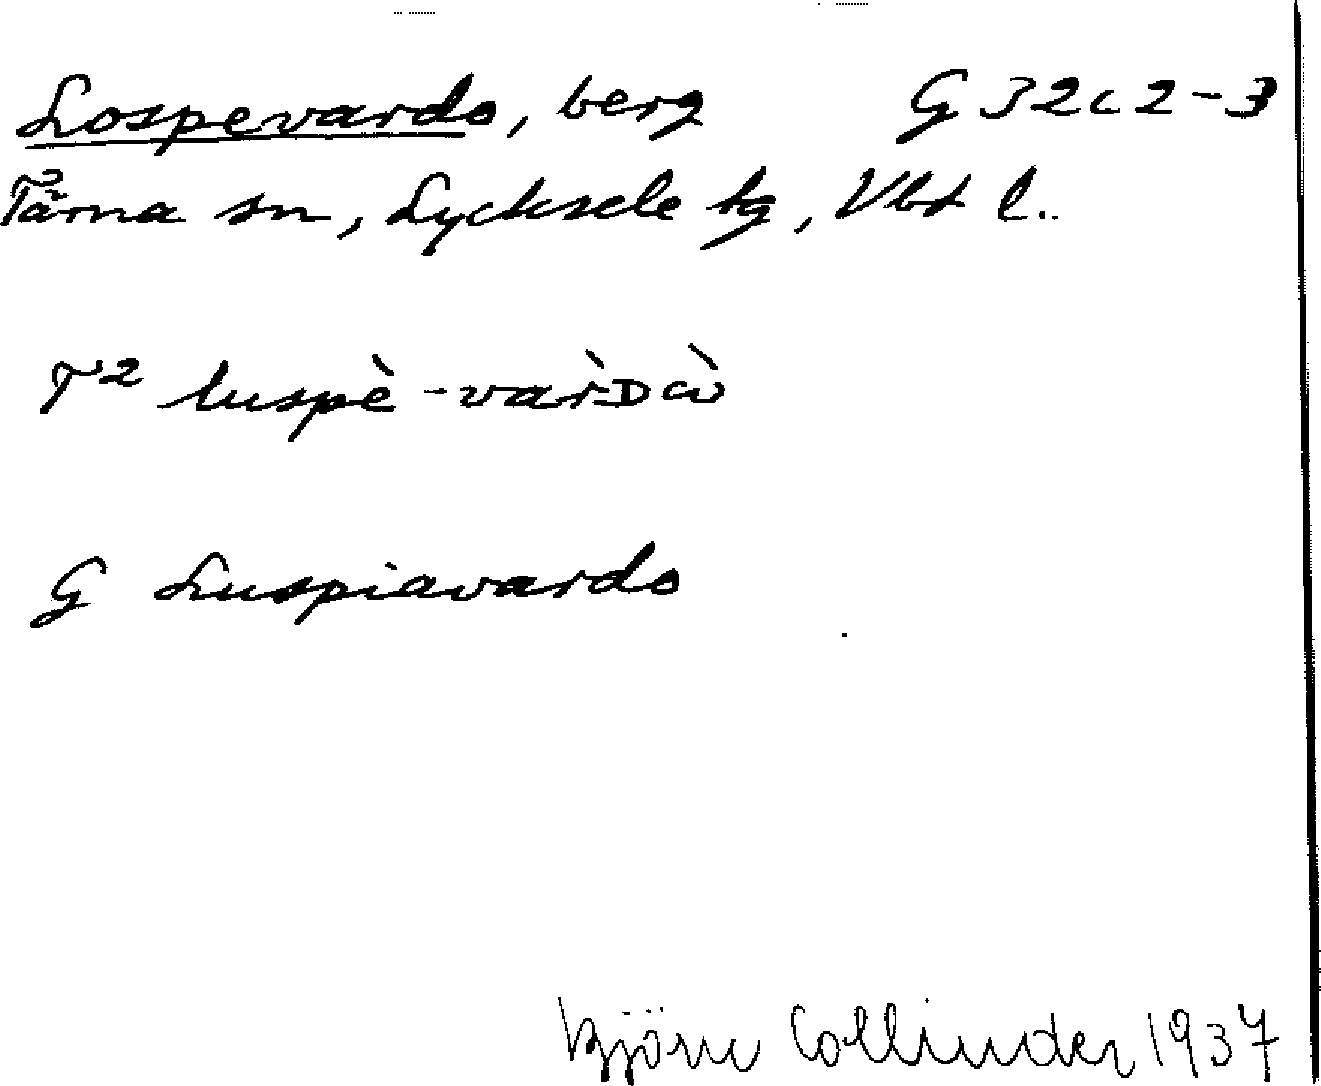 Lospevardo, berg G 32c 2-3
Tärna sn, Lycksele lg, Vbt l.
T² luspè-vàr̀Dɷ̀
G Luspiavardo
Björn Collinder 1937